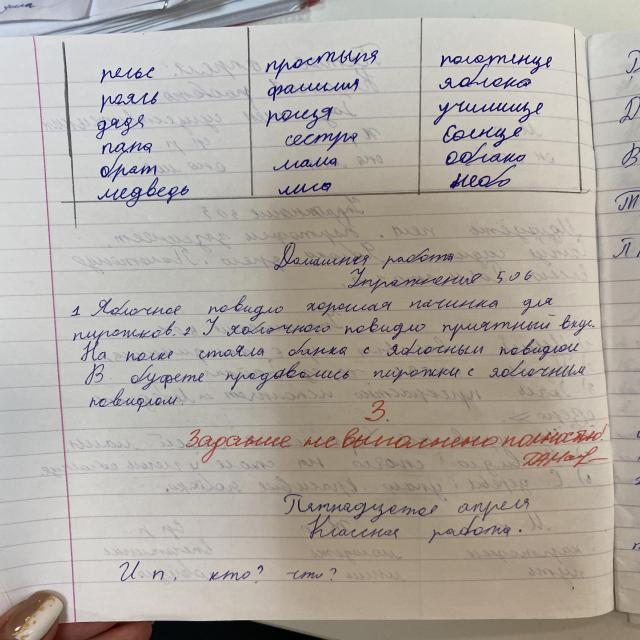 рельс простыня полотенце
рояль фамилия яблоко
дядя роизя училище
папа сестра солнце
брат мама облако
медведь лиса небо
Домашняя работа
Упражнение 506
1 Яблочное повидло хорошая начинка для
пирожков. 2 У яблочного повидло приятный вкус.
На полке стояла банка с яблочным повидлом
В буфете продовались пирожки с яблочним
повидлом.
3.
Задание не выполнено полностью!
Пятнадцатое апреля
Классная работа.
И п. кто? что?